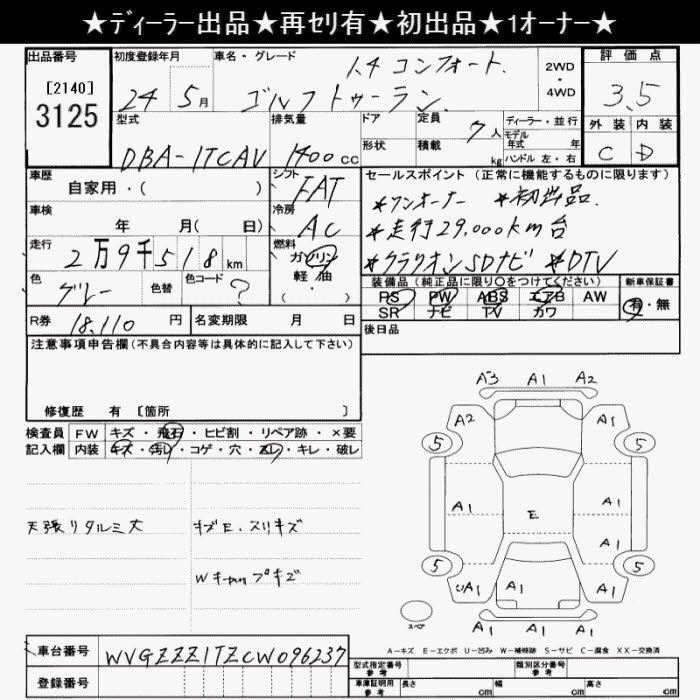 ★ディーラー出品★再セリ有★初出品★1オーナー★
出品番号
[2140]
3125
初度登録年月
24 5月
車名・グレード
1.4 コンフォート.
ゴルフトゥーラン.
2WD
・
4WD
評価点
3.5
外装 内装
C D
型式
DBA-1TCAV
排気量
1400cc
ドア
形状
定員
7人
積載
kg
ディーラー・並行
モデル年式 年
ハンドル 左・右
車歴
自家用・( )
シフト
FAT
車検
年 月( 日)
冷房
AC
走行
2万9千518km
燃料
ガソリン
軽・油
・
色
グレー
色替
色コード
?
R券 18,110 円
名変期限 月 日
セールスポイント(正常に機能するものに限ります)
★ワンオーナー ★初出品.
★走行29,000km台
★クラリオンSDナビ ★DTV
装備品(純正品に限り○をつけてください)
PS PW ABS エアB AW
SR ナビ TV カワ
新車保証書
有・無
後日品
注意事項申告欄(不具合内容等は具体的に記入して下さい)
修復歴 有 [箇所 ]
検査員
記入欄
FW キズ・飛石・ヒビ割・リペア跡・×要
内装 キズ・汚レ・コゲ・穴・スレ・キレ・破レ
天張リタルミ大
キズE.スリキズ
Wキャップキズ
A3 A1 A2
A2 A1
5 5
A1 E A1
A1
5 5
UA1 A1 A1
A1 A1 A1
スペア
A-キズ E-エクボ U-凹み W-補修跡 S-サビ C-腐食 XX-交換済
車台番号
WVGZZZ1TZCW096237
登録番号
型式指定番号
参考
類別区分番号
参考
車庫証明用
参考
長さ cm
幅 cm
高さ cm